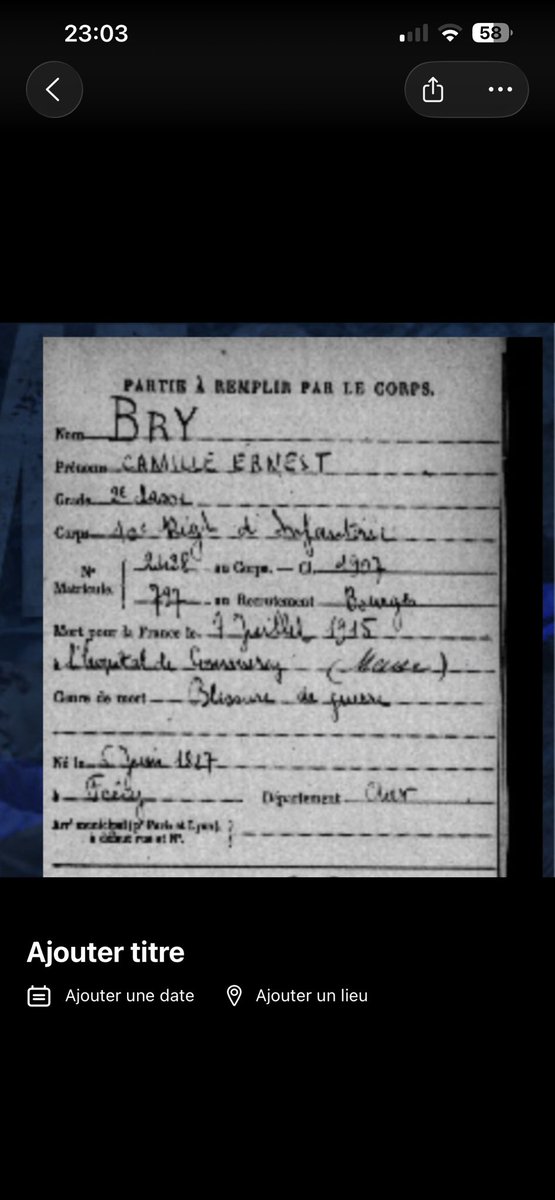 23:03
58
PARTIE À REMPLIR PAR LE CORPS.
Nom BRY
Prénoms CAMILLE ERNEST
Grade 2e classe
Corps Régt d'Infanterie
N° Matricule 2438 au Corps. — Cl. 1907
797 au Recrutement Bourges
Mort pour la France le 7 Juillet 1915
à l'hopital de Commercy (Meuse)
Genre de mort Blessure de guerre
Né le 5 Juin
à Département Cher
Arrt municipal (pr Paris et Lyon),
à défaut rue et N°.
Ajouter titre
Ajouter une date
Ajouter un lieu